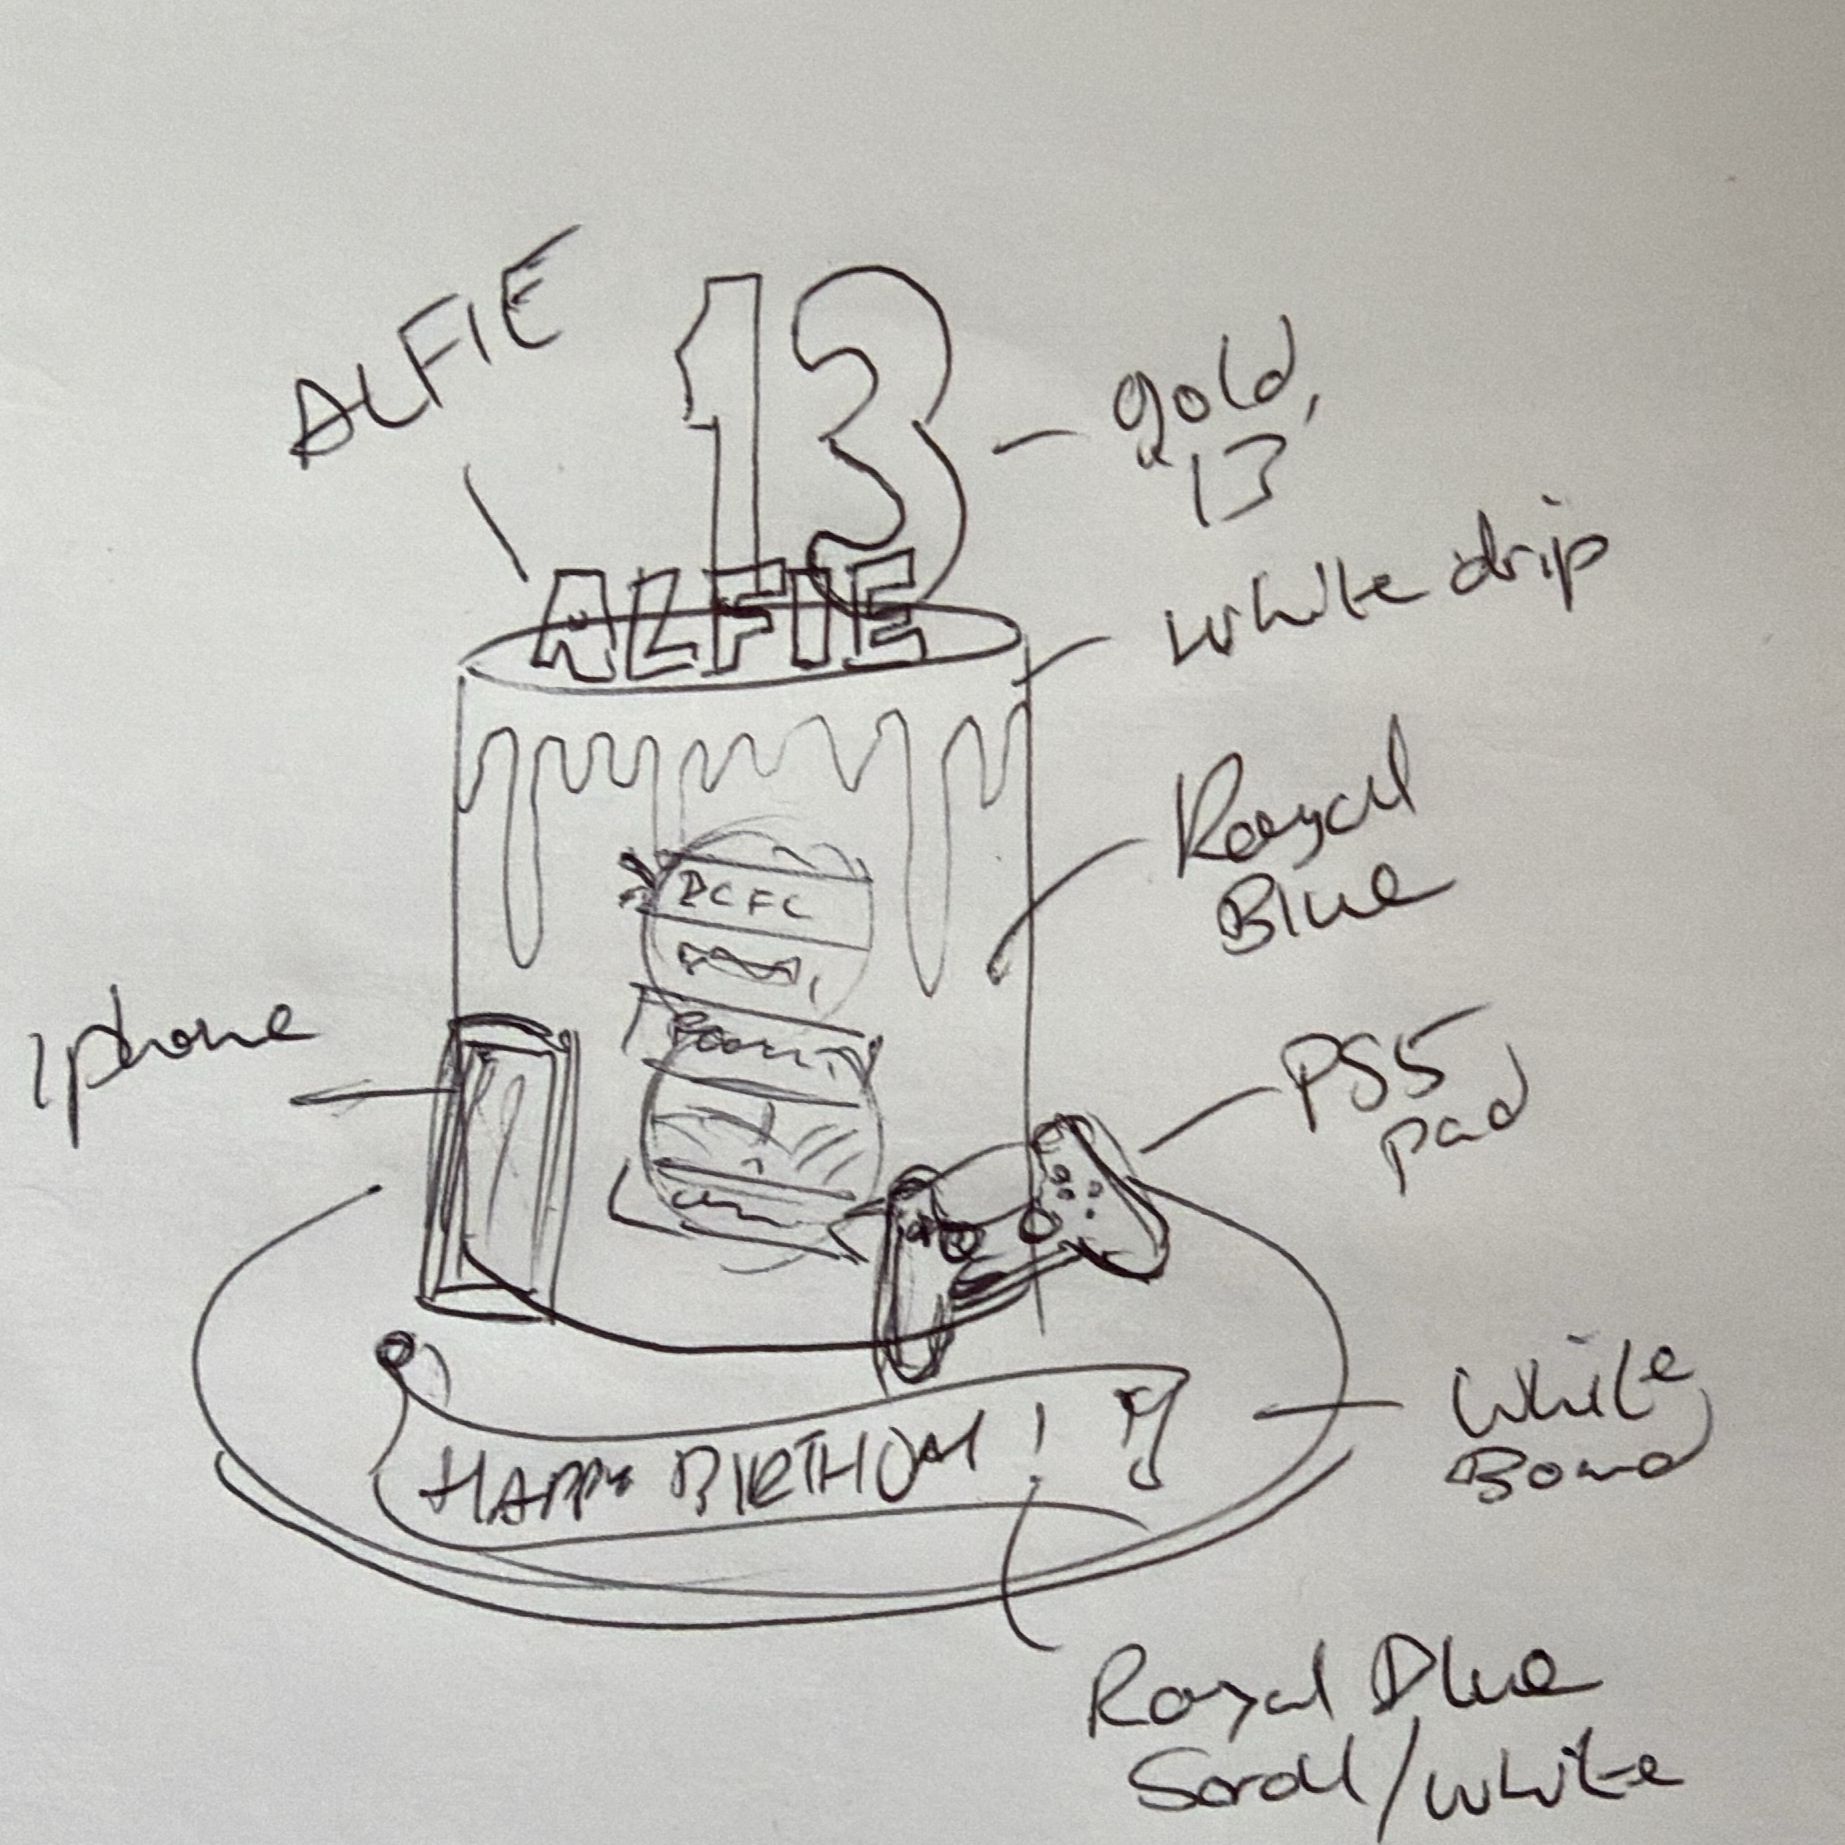 ALFIE
13
gold,
13
ALFIE
White drip
Royal
Blue
BCFC
Iphone
PS5
pad
HAPPY BIRTHDAY !
White
Board
Royal Blue
Scroll/white